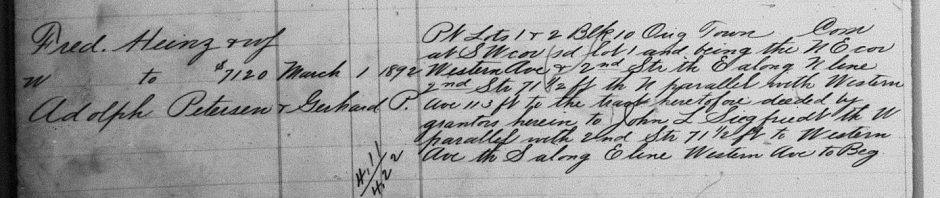 Fred. Heinz & wf
W to $7120 March 1 1892
Adolph Petersen & Gerhard P.
4.11
4.2 2
Pt Lots 1 & 2 Blk 10 Orig Town Com
at SW cor sd lot 1 and being the N E cor
Western Ave & 2nd Str th E along N line
2nd Str 71 1/2 ft th N parallel with Western
Ave 113 ft to the tract heretofore deeded by
grantors herein to John L Siegfriedt th W
parallel with 2nd Str 71 1/2 ft to Western
Ave th S along E line Western Ave to Beg